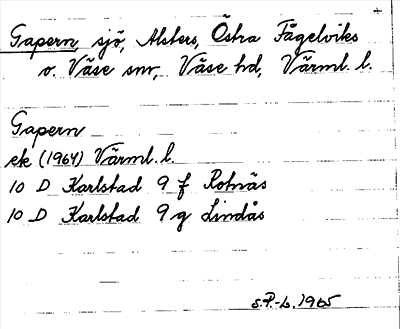 Gapern sjö, Alsters, Östra Fågelviks
o. Väse snr, Väse hd, Värml. l.
Gapern
ek (1964) Värml. l.
10 D Karlstad 9 f Rotnäs
10 D Karlstad 9 g Lindås
S.P.-L. 1965